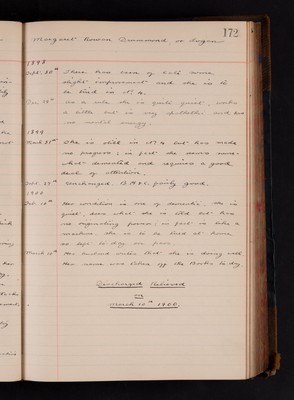 172
Margaret Rowan Drummond or
1898
Sept. 30th There has been of late some
slight improvement and she is to
be tried in No. 4.
Dec 19th As a rule she is quite quiet, makes
a little but is very apathetic and has
no mental energy.
1899
March 31st She is still in No. 4 but has made
no progress; in fact she seems more
demented and requires a good
deal of attention.
Sept. 29th Unchanged. B. H. & C. fairly good.
1900
Feb. 10th Her condition is one of dementia. She is
quiet, does what she is told but has
no originating power; in fact is like a
machine. She is to be tried at home
so left to day on pass.
March 10th Her husband writes that she is doing well
Her name was taken off the Books to day
Discharged Relieved
on
March 10th 1900.